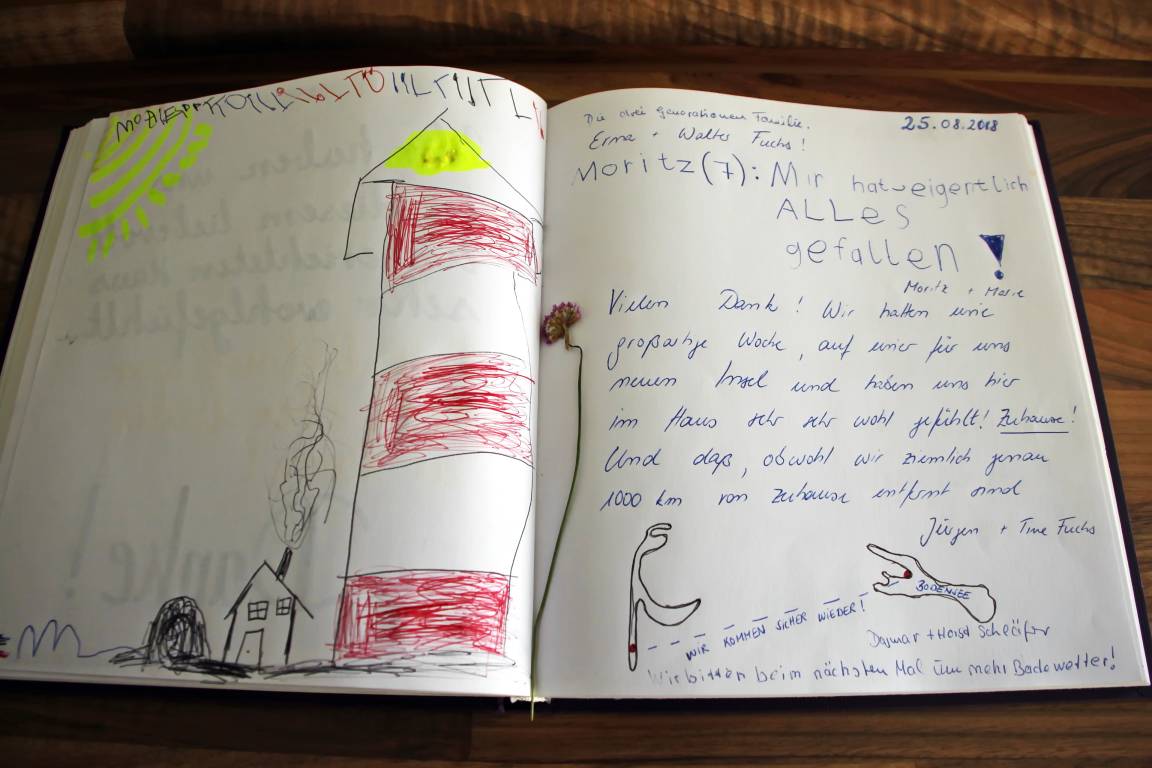 Die drei Generationen Familie.
25.08.2018
Erma + Walter Fuchs!
Moritz (7): Mir hat eigentlich
ALLES
gefallen!
Moritz + Marie
Vielen Dank! Wir hatten eine
großartige Woche, auf einer für uns
neuen Insel und haben uns hier
im Haus sehr sehr wohl gefühlt! Zuhause!
Und daß, obwohl wir ziemlich genau
1000 km von zuhause entfernt sind
Jürgen + Tine Fuchs
BODENSEE
WIR KOMMEN SICHER WIEDER!
Dagmar + Horst Schläfer
Wir bitten beim nächsten Mal um mehr Badewetter!